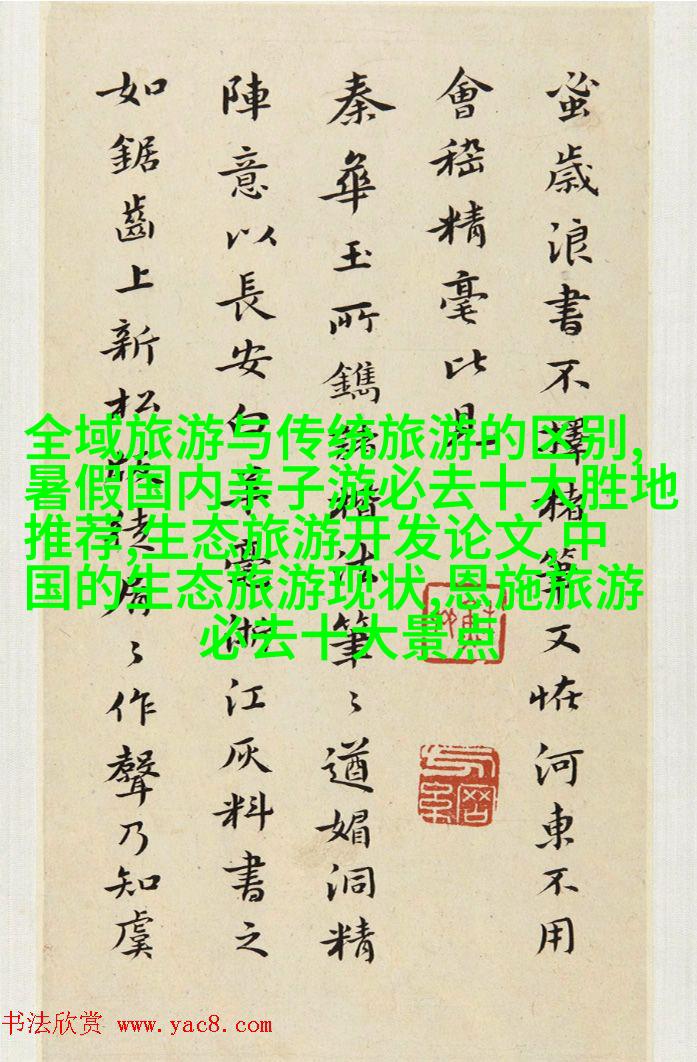 蚤歲浪書不擇楮筭又恠河東不用
會稽精毫比
秦華玉所鐫法筆〻遒媚洞精
陣意以長安白毫江灰料書之
如鋸齒上新松屑〻作聲乃知虞
全域旅游与传统旅游的区别,
暑假国内亲子游必去十大胜地
推荐,生态旅游开发论文,中
国的生态旅游现状,恩施旅游
必去十大景点
书法欣赏 www.yac8.com